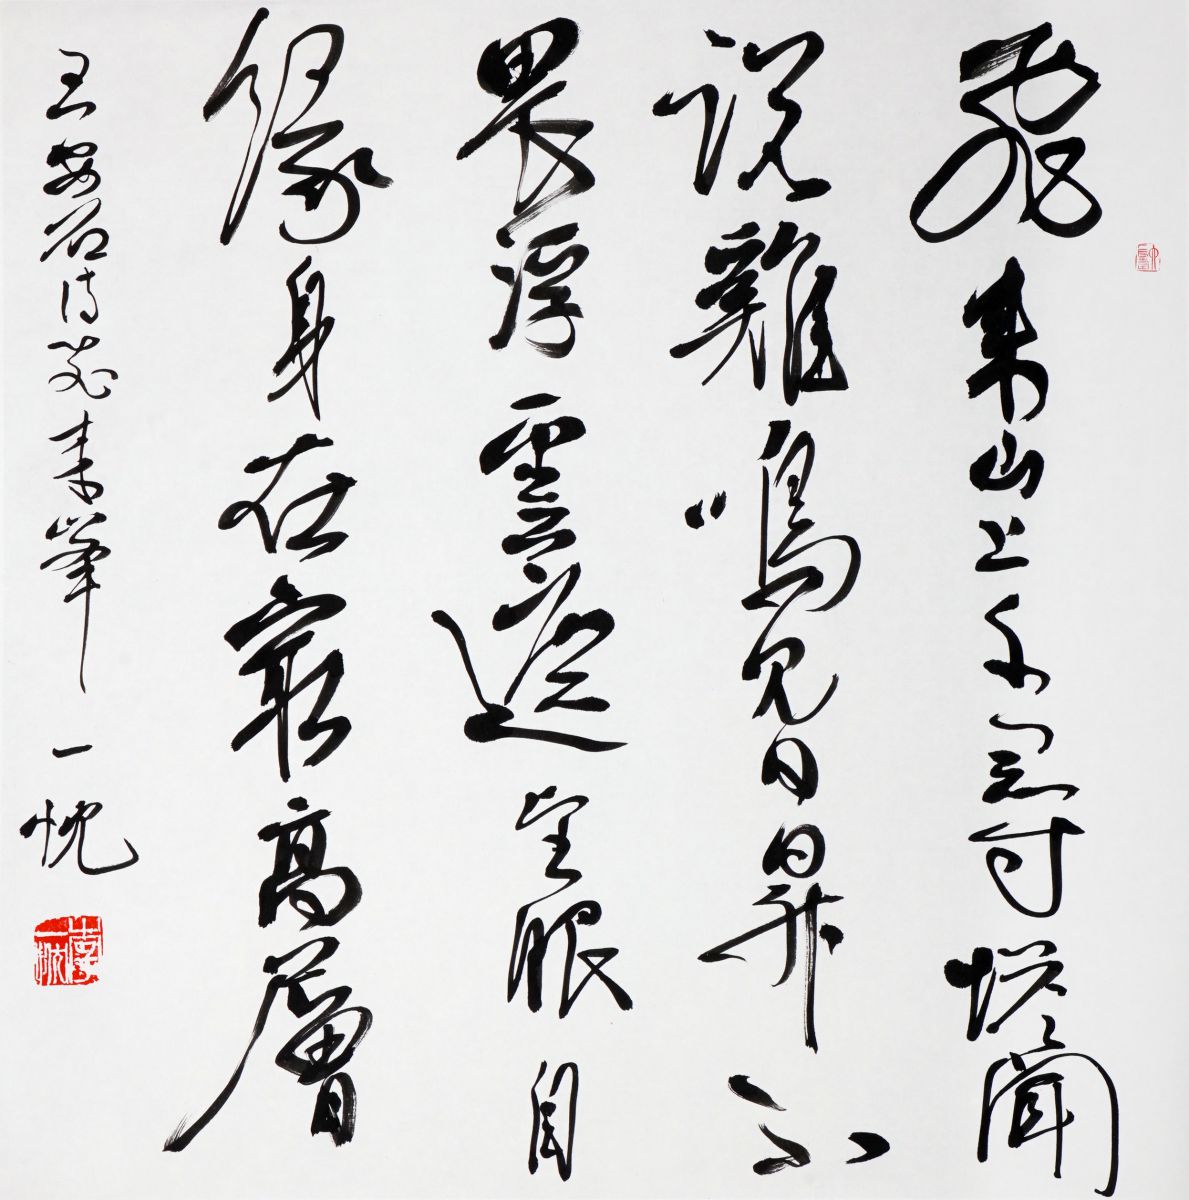 飛来山上千尋塔聞
說雞鳴見日昇不
畏浮雲遮望眼自
緣身在最高層
王安石诗飛来峯 一忱
李一忱